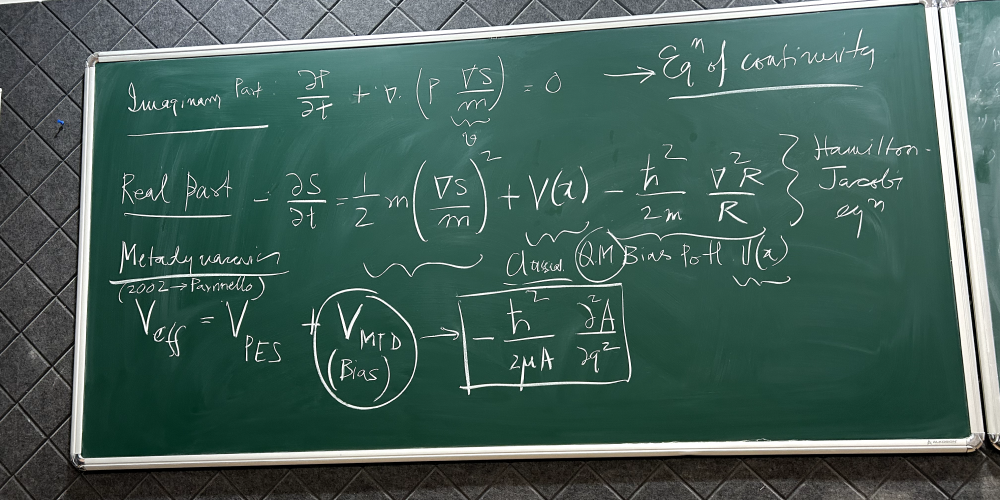 Imaginary Part: ∂P/∂t + ∇. (P ∇S/m) = 0 → Eqⁿ of continuity
v
Real Part - ∂S/∂t = 1/2 m (∇S/m)² + V(x) - ħ²/2m ∇²R/R } Hamilton-Jacobi eqⁿ
Metadynamics Classical QM Bias Potl U(x)
(2002 → Parrinello)
V_eff = V_PES + V_MTD (Bias) → - ħ²/2μA ∂²A/∂q²